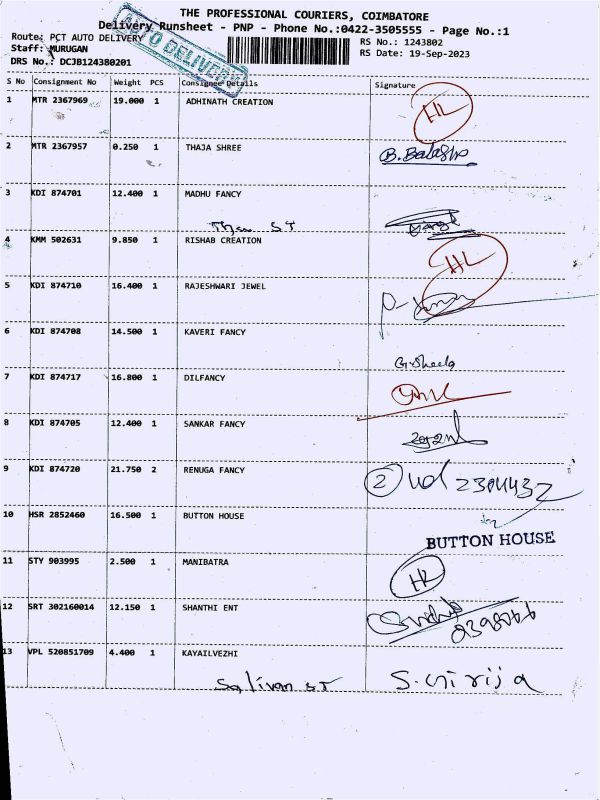 THE PROFESSIONAL COURIERS, COIMBATORE
Delivery Runsheet - PNP - Phone No.:0422-3505555 - Page No.:1
Route: PCT AUTO DELIVERY
RS No.: 1243802
Staff: MURUGAN
RS Date: 19-Sep-2023
DRS No.: DCJB124380201
AUTO DELIVERY
S No Consignment No Weight PCS Consignee Details Signature
1 MTR 2367969 19.000 1 ADHINATH CREATION
HL
2 MTR 2367957 0.250 1 THAJA SHREE
3 KDI 874701 12.400 1 MADHU FANCY
4 KMM 502631 9.850 1 RISHAB CREATION
HL
5 KDI 874710 16.400 1 RAJESHWARI JEWEL
6 KDI 874708 14.500 1 KAVERI FANCY
G. Sheela
7 KDI 874717 16.800 1 DILFANCY
8 KDI 874705 12.400 1 SANKAR FANCY
9 KDI 874720 21.750 2 RENUGA FANCY
2
10 HSR 2852460 16.500 1 BUTTON HOUSE
BUTTON HOUSE
11 STY 903995 2.500 1 MANIBATRA
12 SRT 302160014 12.150 1 SHANTHI ENT
13 VPL 520851709 4.400 1 KAYAILVEZHI
Salivan ST S. Girija